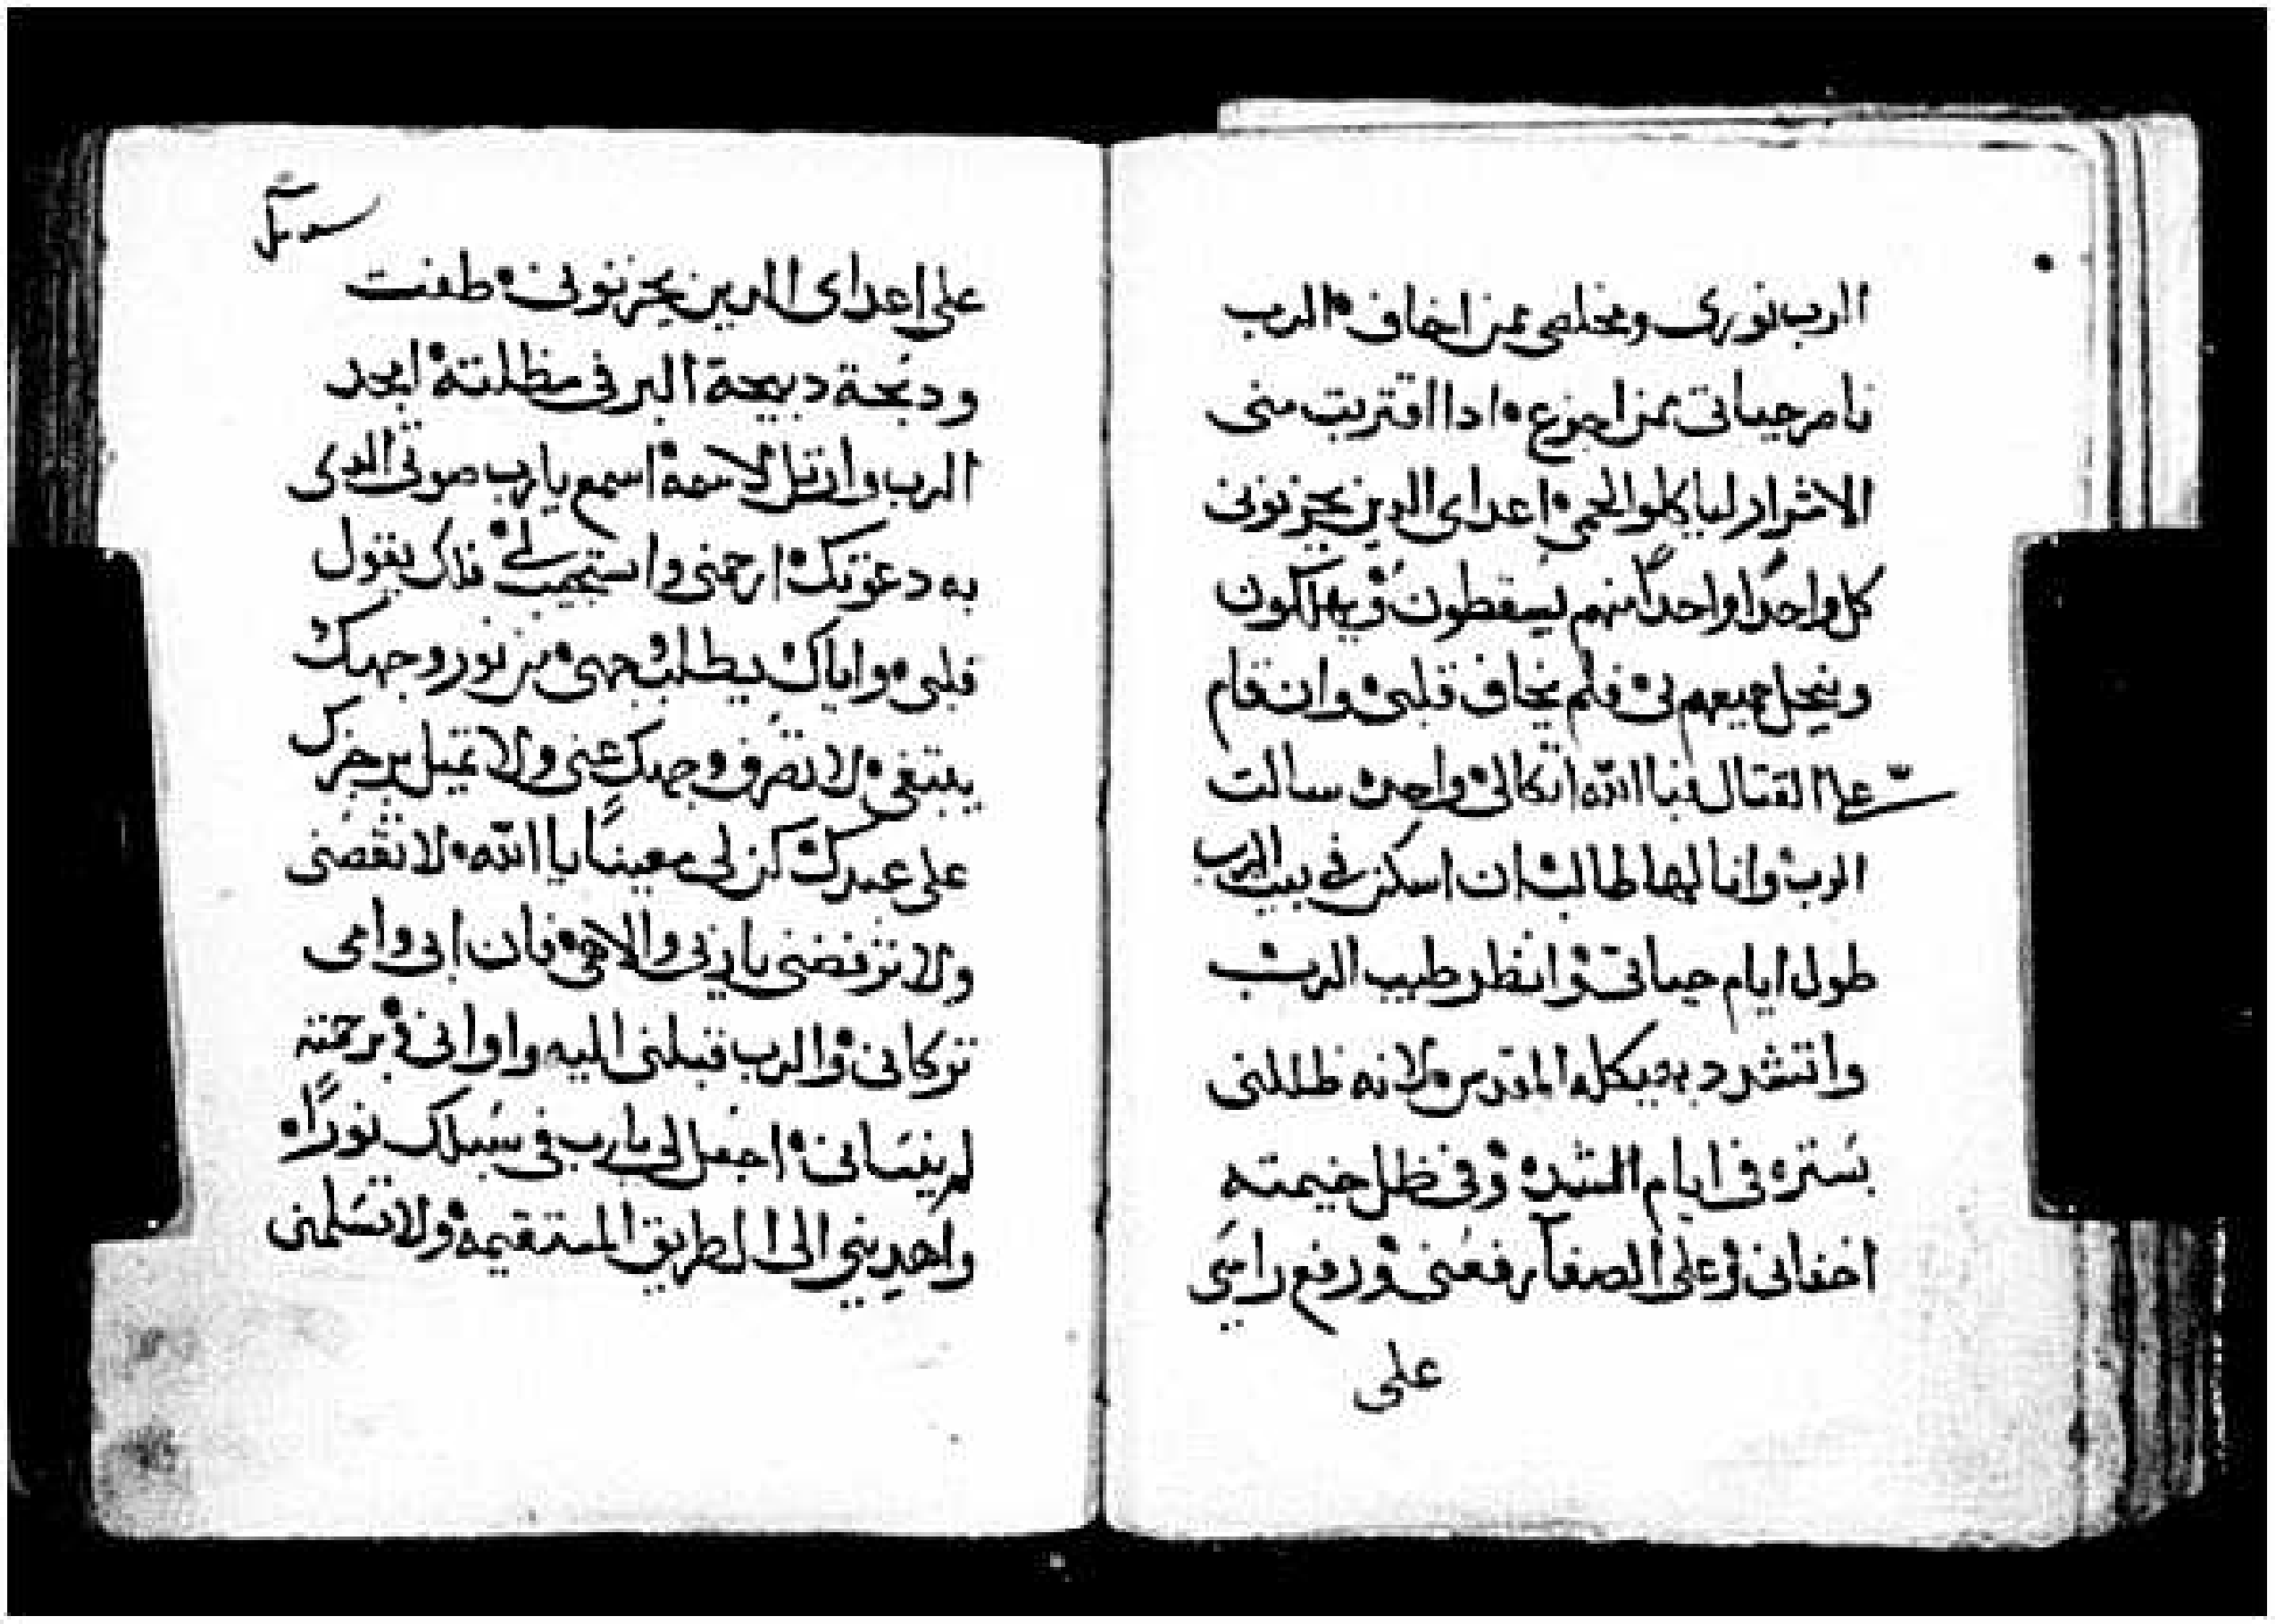 الرب نورى ومخلصى ممن اخاف الرب
ناصر حياتى ممن اجزع ادا اقتربت منى
الاشرار لياكلوا لحمى اعداى الدين يحزنونى
كل واحدًا واحدًا منهم يسقطون ويهلكون
جميعهم بى فلم يخاف قلبى وان قام
على القتال فبا الله اتكالى واحده سالت
الرب وانا لها طالب ان اسكن فى بيت الرب
طول ايام حياتى وانظر طيب الرب
واتشرد بهيكله المقدس لانه ظللنى
بستره فى ايام الشده وفى ظل خيمته
اخفانى وعلى الصفا رفعنى ورفع راسى
على
على اعداى الدين يحزنونى طفت
ودبحة دبيحة البر فى مظلته امجد
الرب وارتل لاسمه اسمع يارب صوتى الدى
به دعوتك ارحمنى واستجيب لى فاك يقول
قلبى واياك يطلب وجهى من نور وجهك
يبتغى لا تصرف وجهك عنى ولا تميل برجزك
على عبدك كن لى معينًا يا الله لا تقصنى
ولا ترفضنى يا ربى والاهى فان ابى وامى
تركانى والرب قبلنى اليه واوانى فى برحمته
لم ينسانى اجعل لى يارب فى سبلك نورًا
واهدينى الى الطريق المستقيمه ولا تسلمنى